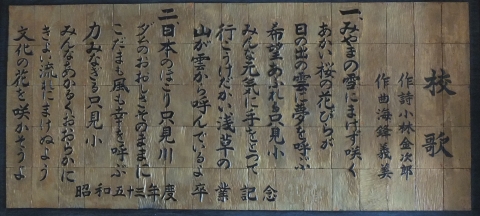 校歌
作詩 小林金次郎
作曲 海鋒義美
一、みやまの雪にまけず咲く
あかい桜の花びらが
日の出の雲に夢を呼ぶ
希望あふれる只見小
みんな元気に手をとって
行こうけだかい浅草の
山が雲から呼んでいるよ
二、日本のほこり只見川
ダムのおおしさそのままに
こだまも風も幸を呼ぶ
力みなぎる只見小
みんなのかるくおおらかに
きよい流れにまけぬよう
文化の花を咲かそうよ
昭和五十三年度 卒業記念